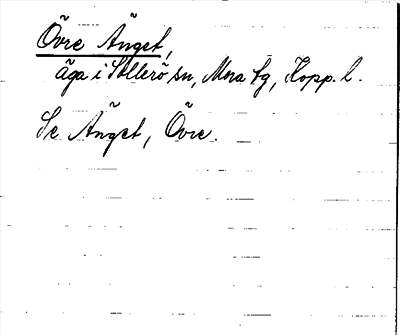 Övre Änget,
äga i Sollerö sn, Mora tg, Kopp. l.
Se Änget, Övre.